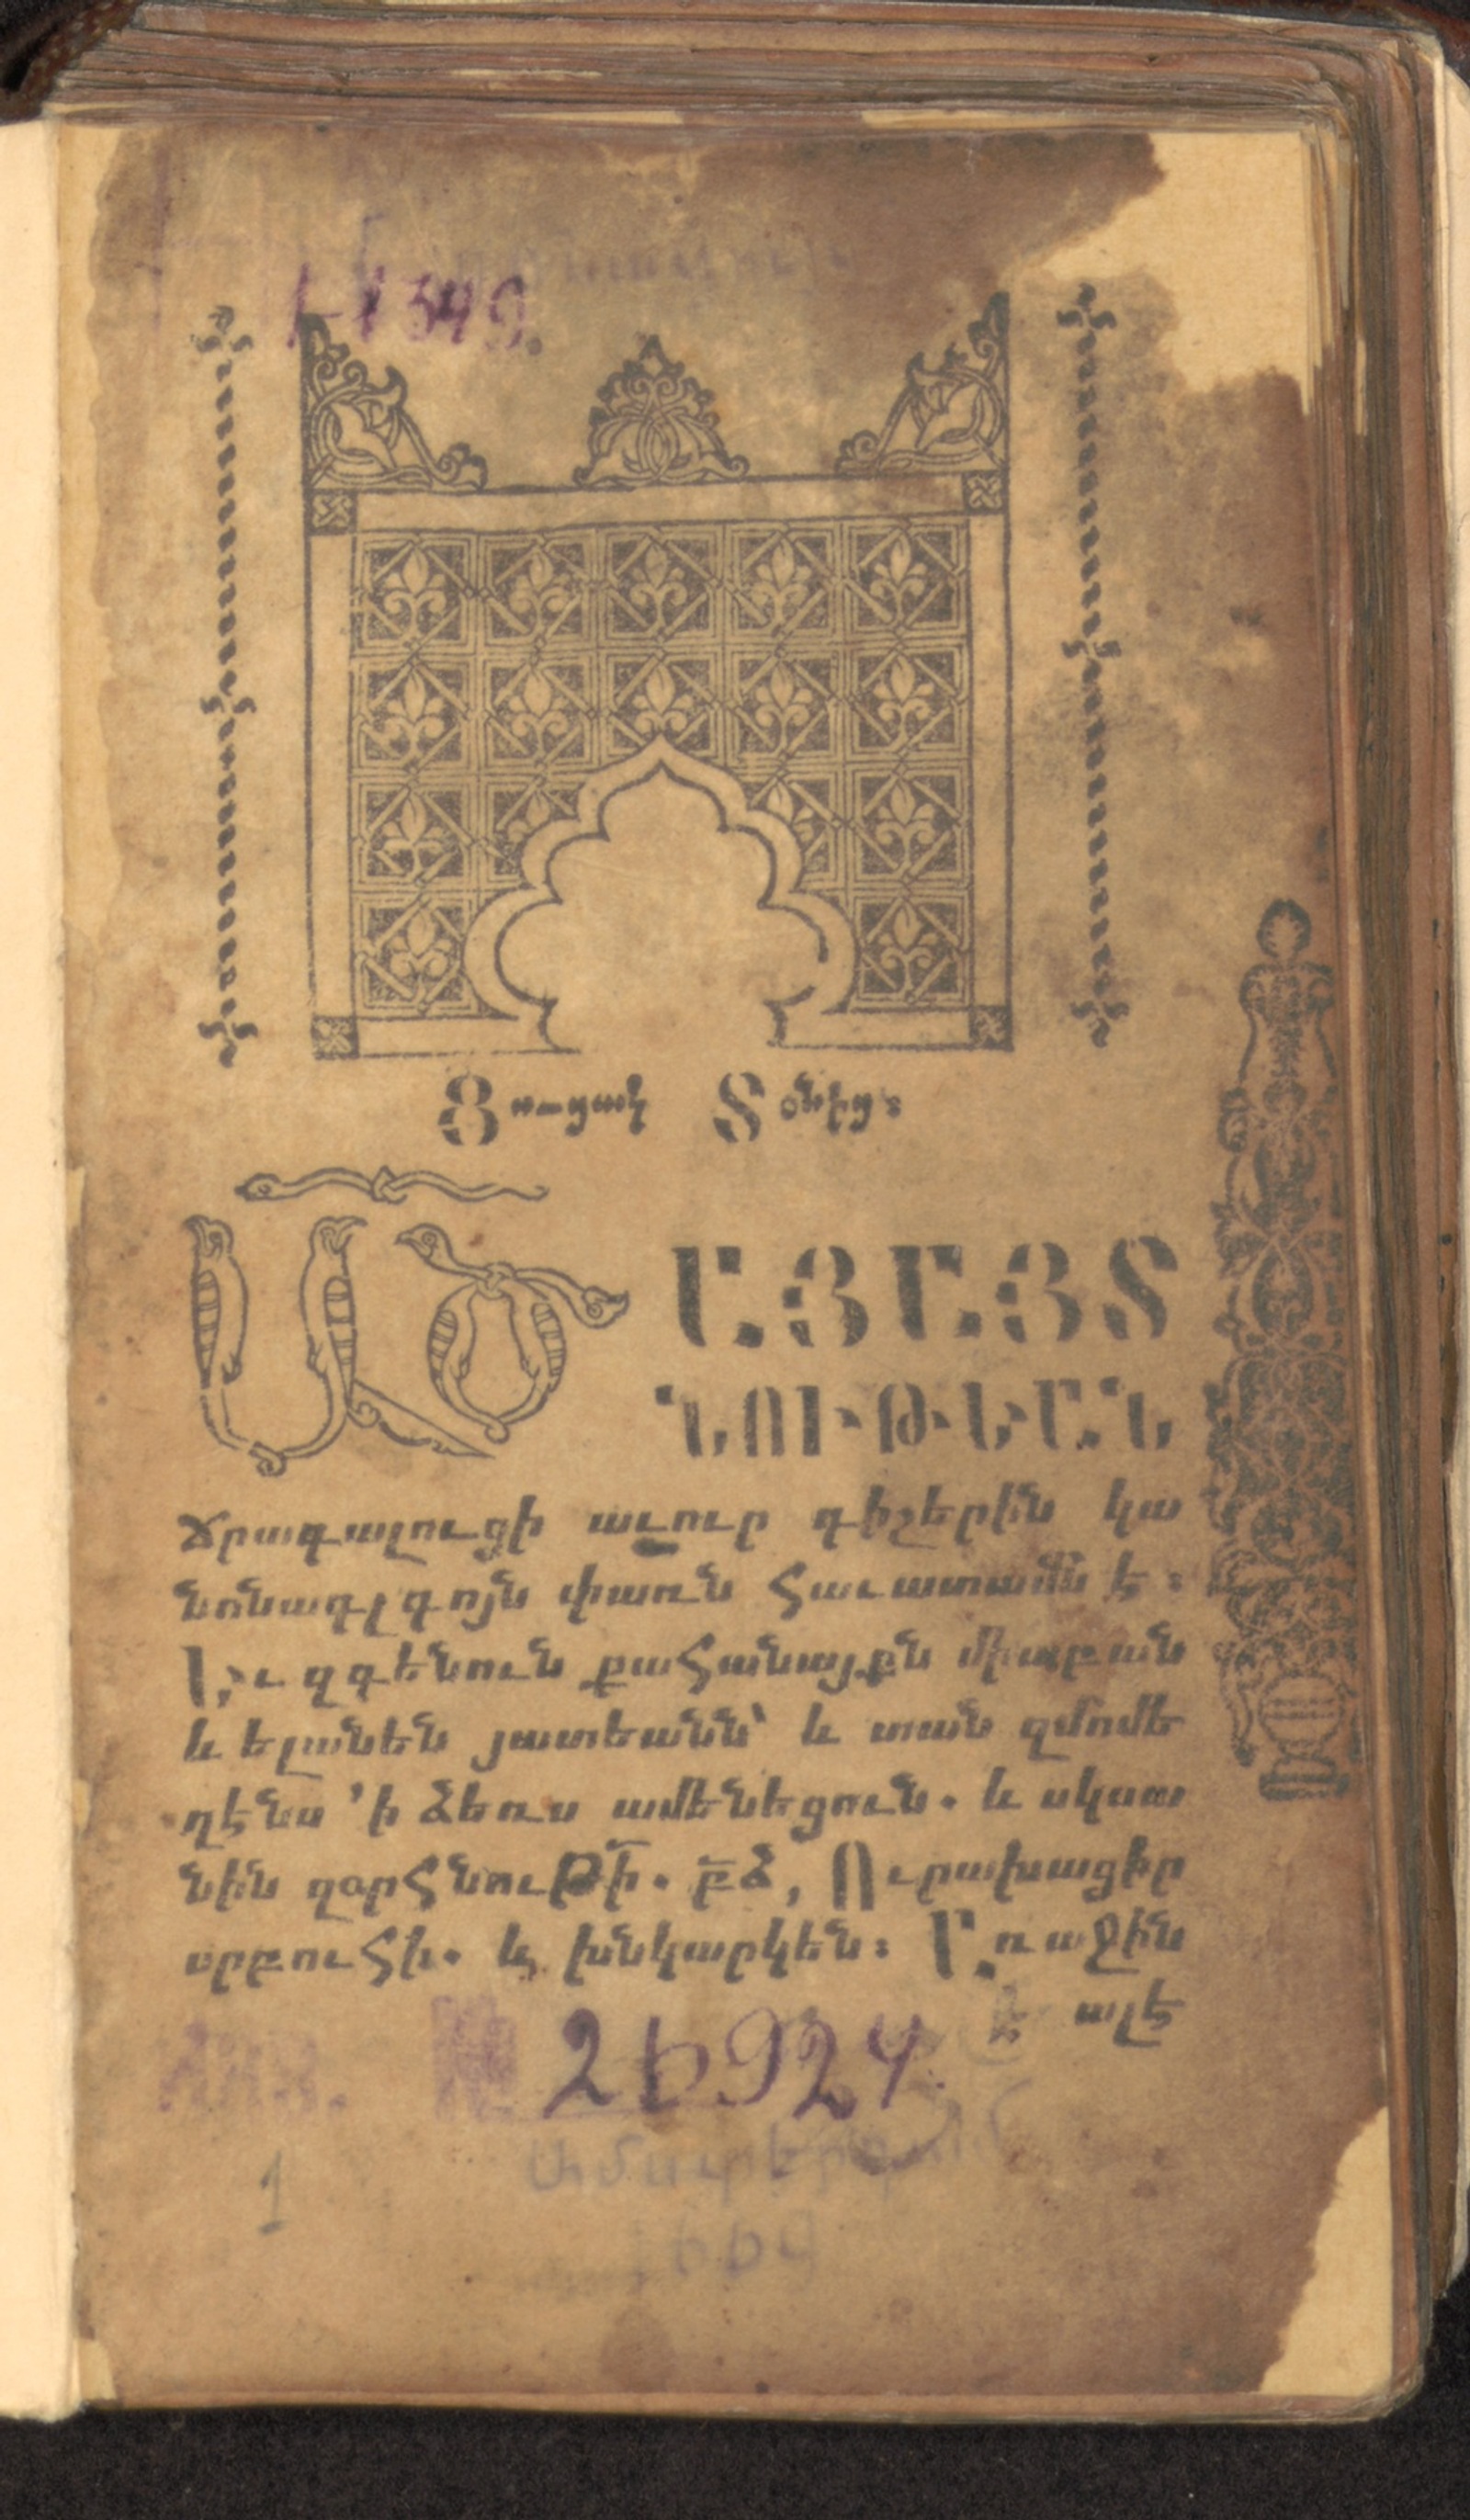 1-1349.
Յուցակ Տօնից։
ԱԾ ԱՅԱՅՏ
ՆՈՒԹԵԱՆ
Ճրագալուցի աւուր գիշերին կա
նոնագլգոյն փառն հաւատամն է։
Եւ զգենուն քահանայքն միաբան
և ելանեն յատեանն՝ և տան զմոմե
ղէնս ՚ի ձեռս ամենեցուն. և սկսա
նին զօրհնուԹի. բձ, Ուրախացիր
սրբուհի. և խնկարկեն։ Առաջին
ալե
ИНВ. № 26924
1